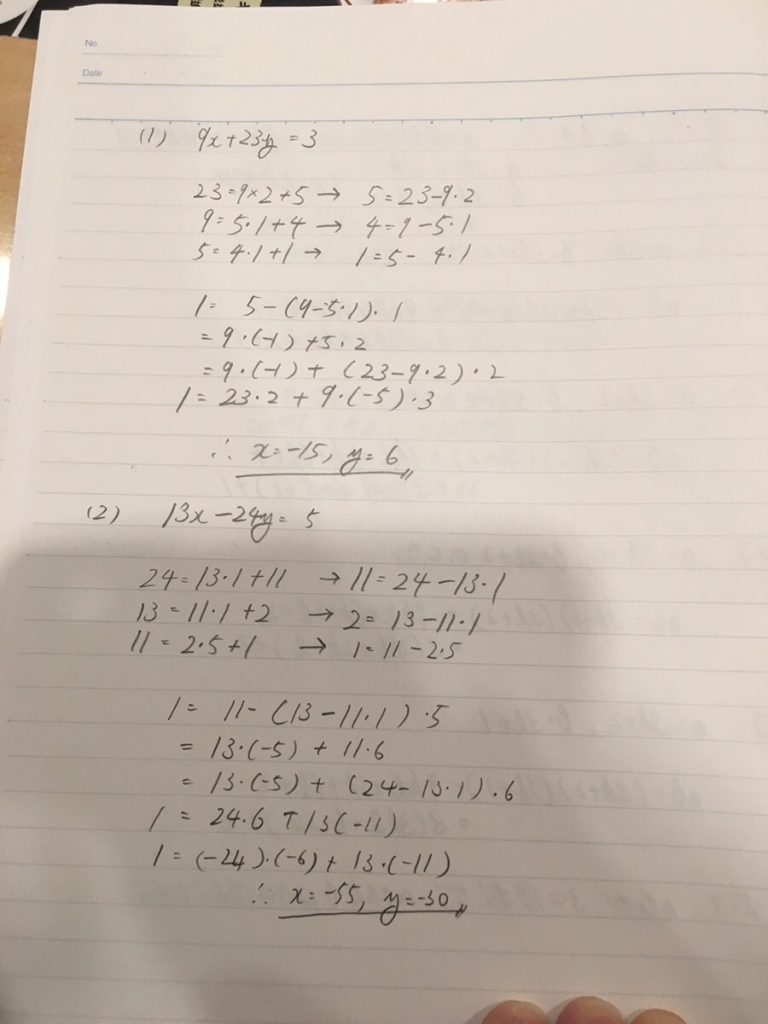 No.
Date
(1) 9x+23y=3
23=9×2+5 → 5=23-9·2
9=5·1+4 → 4=9-5·1
5=4·1+1 → 1=5-4·1
1= 5-(9-5·1)·1
=9·(-1)+5·2
=9·(-1)+(23-9·2)·2
1=23·2+9·(-5)·3
∴ x=-15, y=6
(2) 13x-24y=5
24=13·1+11 → 11=24-13·1
13=11·1+2 → 2=13-11·1
11=2·5+1 → 1=11-2·5
1= 11-(13-11·1)·5
=13·(-5)+11·6
=13·(-5)+(24-13·1)·6
1 = 24·6+13(-11)
1=(-24)·(-6)+13·(-11)
∴ x=-55, y=-30